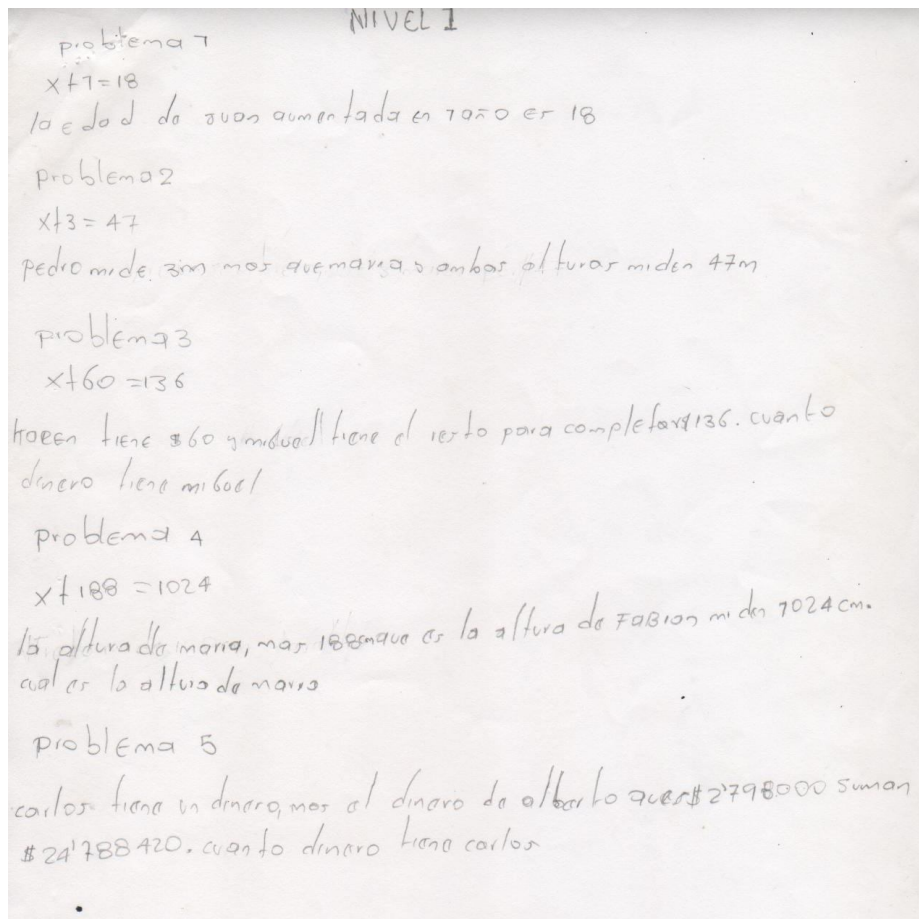 NIVEL 1
problema 1
x+1=18
la edad de Juan aumentada en 1año es 18
problema2
x+3=47
pedro mide 3m mas que maria y ambas alturas miden 47m
problema3
x+60=136
Koren tiene $60 y miguel tiene el resto para completar $136. cuanto
dinero tiene miguel
problema 4
x+188=1024
la altura de maria, mas 188cm que es la altura de FaBion miden 1024cm.
cual es la altura de maria
problema 5
carlos tiene un dinero, mas el dinero de alberto que es $2'798000 suman
$24'788420. cuanto dinero tiene carlos